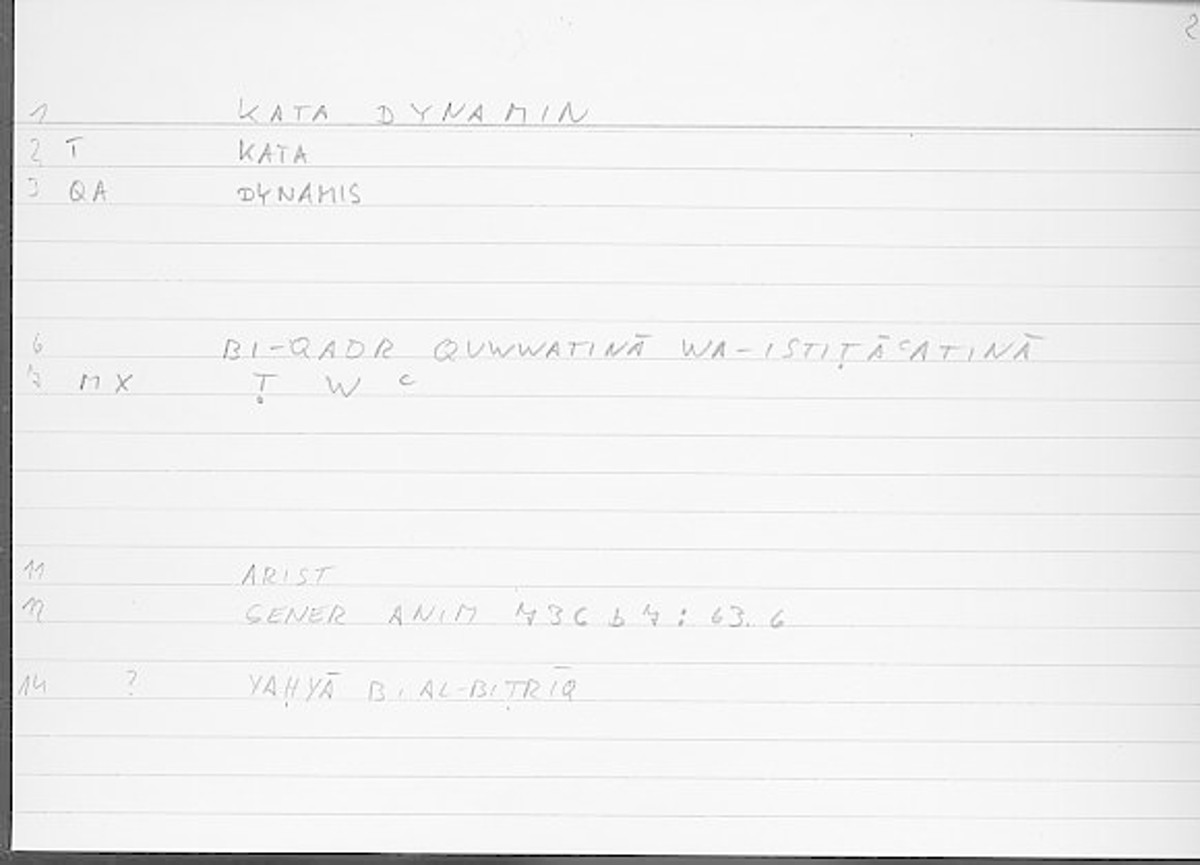 2
1 KATA DYNAMIN
2 T KATA
3 QA DYNAMIS
6 BI-QADR QUWWATINĀ WA-ISTIṬĀᶜATINĀ
7 MX Ṭ W ᶜ
11 ARIST
12 GENER ANIM 736 b 7 : 63. 6
14 ? YAḤYĀ B. AL-BIṬRĪQ